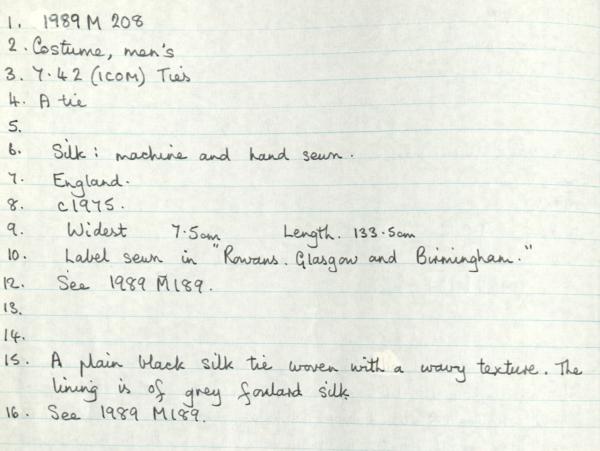 1. 1989 M 208
2. Costume, men's
3. 7.42 (ICOM) Ties
4. A tie
5.
6. Silk: machine and hand sewn.
7. England.
8. c1975.
9. Widest 7.5cm Length. 133.5cm
10. Label sewn in "Rowans. Glasgow and Birmingham."
12. See 1989 M189.
13.
14.
15. A plain black silk tie woven with a wavy texture. The
lining is of grey foulard silk
16. See 1989 M189.